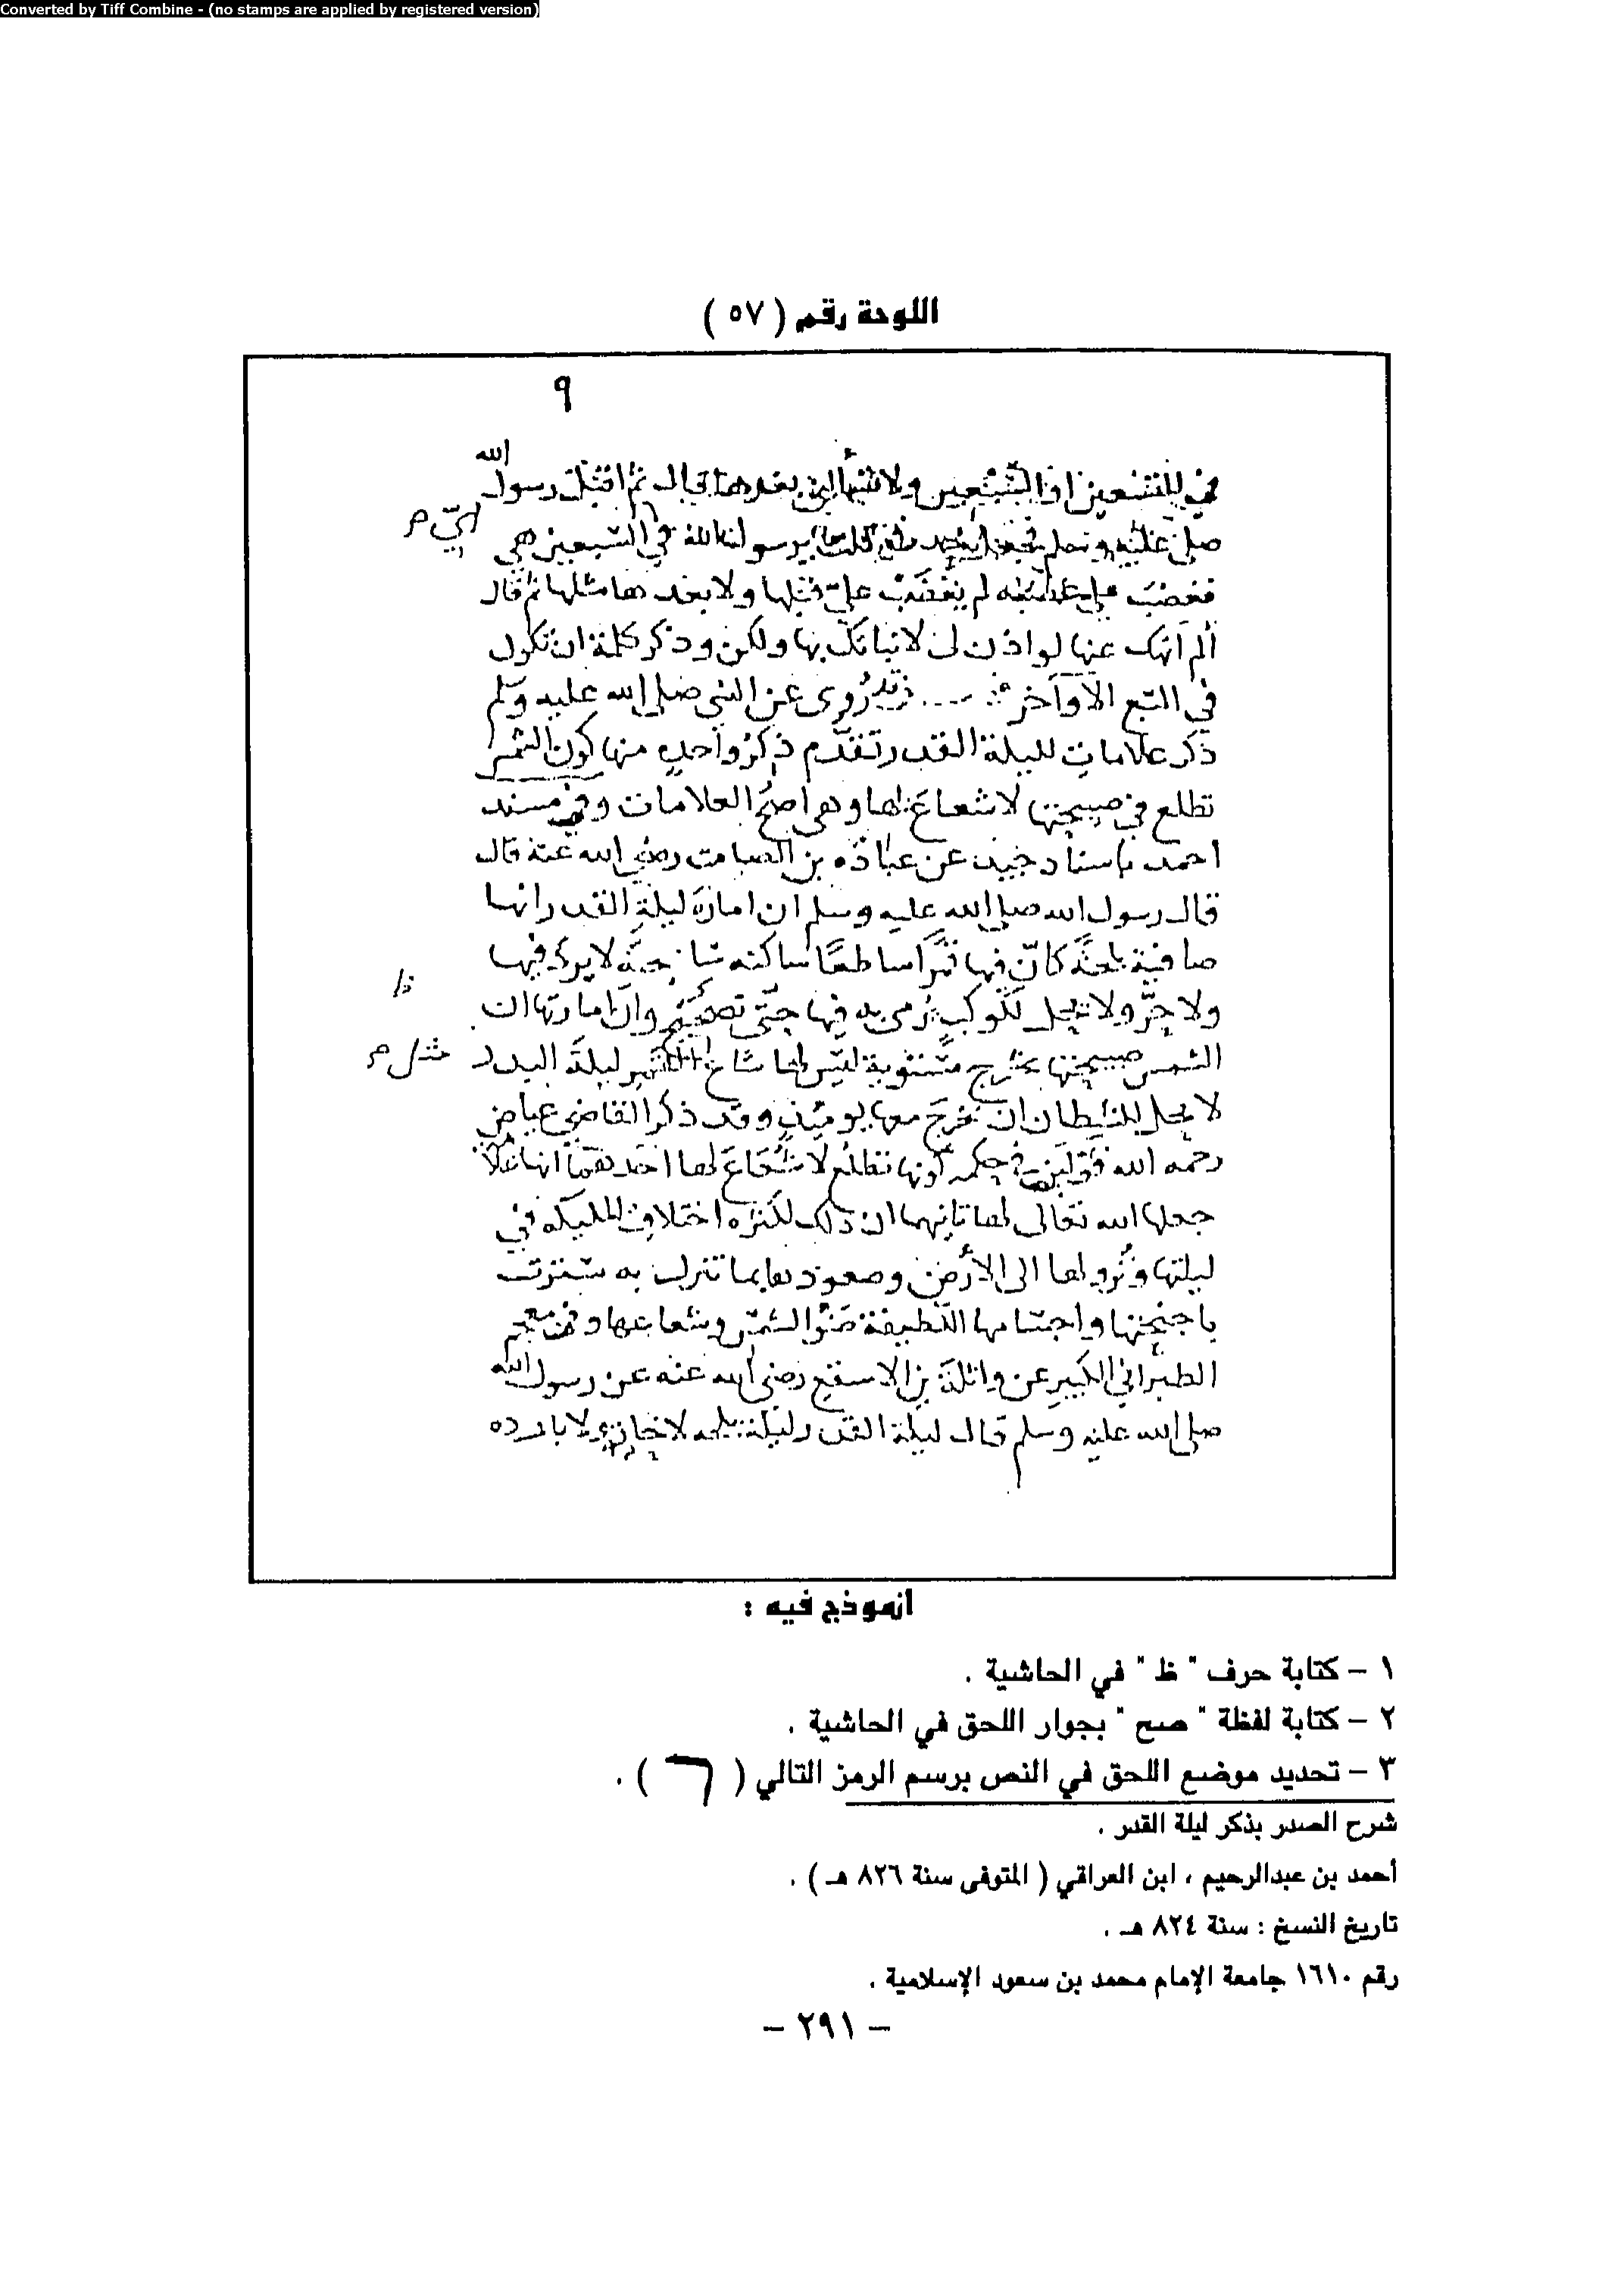 Converted by Tiff Combine - (no stamps are applied by registered version)
اللوحة رقم ( ٥٧ )
٩
ولا بعدها قال ثم اقبل رسول الله
صلى عليه وسلم في السبعين هي
اي
فغضب علي لم يغضب علي قبلها ولا بعدها مثلها ثم قال
ألم أنهك عنها لو اذن لي لانباتك بها ولكن وذكر كلمة ان تكون
في السبع الأواخر وقد رُوي عن النبي صلى الله عليه وسلم
ذكر علامات لليلة القدر تقدم ذكر واحدٍ منها كون الشمس
تطلع في صبيحتها لا شعاع لها وهي اصح العلامات وفي مسند
احمد باسناد جيد عن عبادة بن الصامت رضي الله عنه قال
قال رسول الله صلى الله عليه وسلم ان امارة ليلة القدر انها
صافية بلجة كانّ فيها قمراً ساطعًا ساكنه لا برد فيها
ظ
ولا حرّ ولا يحل لكوكب يُرمى به فيها حتّى تصبح وان امارتها ان
الشمس صبيحتها تخرج مستوية ليس لها شعاع القمر ليلة البدر
مثل
لا يحل للشيطان ان يخرج معها يومئذٍ وقد ذكر القاضي عياض
رحمه الله قولين في حكمة كونها تطلع لا شُعَاعَ لها احدهما انها علامة
جعلها الله تعالى لها ثانيهما ان ذلك لكثرة اختلاف المليكه في
ليلتها ونزولها الى الأرض وصعودها بما تنزل به سترت
باجنحتها واجسامها اللطيفة ضوّ الشمس وشعاعها وفي معجم
الطبراني الكبير عن واثلة بن الاسقع رضي الله عنه عن رسول الله
صلى الله عليه وسلم قال ليلة القدر ليلة بلجه لا حارة ولا بارده
أنموذج فيه :
١ – كتابة حرف " ظ " في الحاشية .
٢ – كتابة لفظة " صح " بجوار اللحق في الحاشية .
٣ – تحديد موضع اللحق في النص برسم الرمز التالي ( ) .
شرح الصدر بذكر ليلة القدر .
أحمد بن عبدالرحيم ، ابن العراقي ( المتوفى سنة ٨٢٦ هـ ) .
تاريخ النسخ : سنة ٨٢٤ هـ .
رقم ١٦١٠ جامعة الإمام محمد بن سعود الإسلامية .
– ٢٩١ –